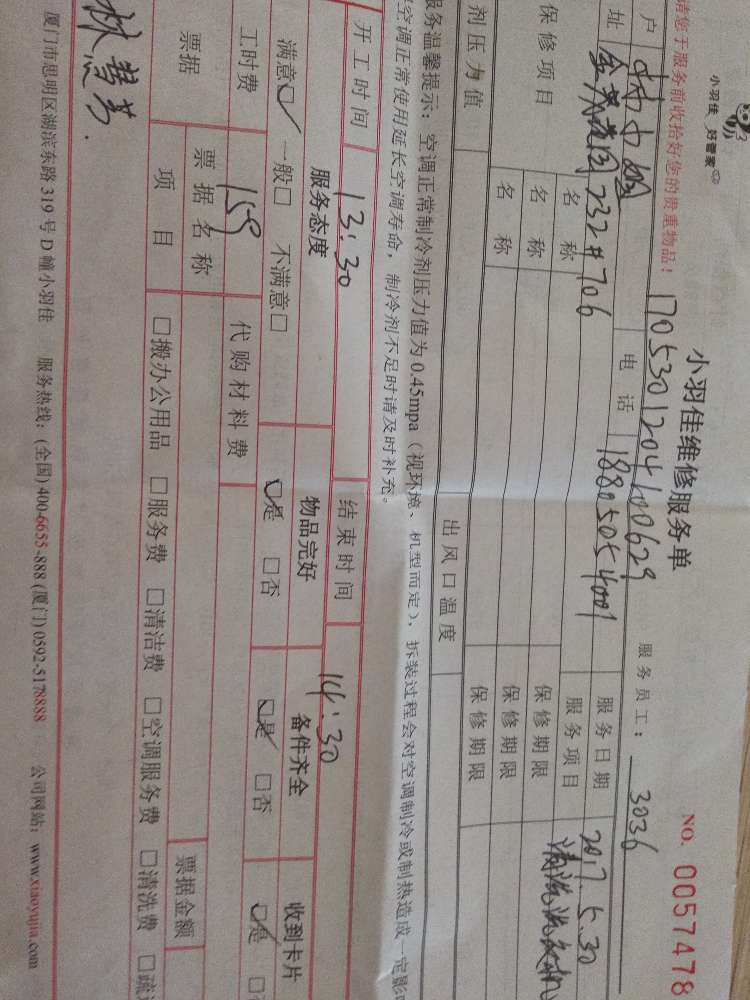 小羽佳 好管家
小羽佳维修服务单
NO. 0057478
请您于服务前收拾好您的贵重物品！
170530120410 0629
服务员工： 3036
户
电话 18805054001
服务日期 2017.5.30
址 232#706
服务项目 清洗洗衣机
保修项目 名称 保修期限
名称 保修期限
名称 保修期限
剂压力值 出风口温度
服务温馨提示：空调正常制冷剂压力值为0.45mpa（视环境、机型而定），拆装过程会对空调制冷或制热造成一定影
空调正常使用延长空调寿命，制冷剂不足时请及时补充。
开工时间 13:30 结束时间 14:30
服务态度 物品完好 备件齐全 收到卡片
满意☑ 一般□ 不满意□ ☑是 □否 ☑是 □否 ☑是
工时费 159 代购材料费
票据 票据名称 票据金额
项目 □搬办公用品 □服务费 □清洁费 □空调服务费 □清洗费 □疏
林慧芳.
厦门市思明区湖滨东路319号D幢小羽佳 服务热线：(全国)400-6655-888 (厦门)0592-5178888 公司网站：www.xiaoyujia.com